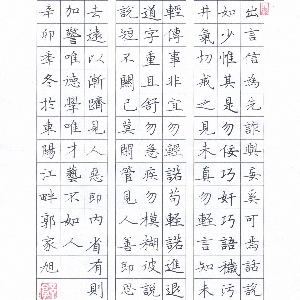 出言信為先詐與妄奚可焉話說
如少惟其是勿佞巧奸巧語穢污
井氣切戒之見未真勿輕言知未
輕傳事非宜勿輕諾苟輕諾進退
道字重且舒勿急疾勿模糊彼說
說短不關己莫閒管見人善即思
去遠以漸躋見人惡即內省有則
加警唯德學唯才藝不如人
辛卯季冬於東陽江畔郭家旭